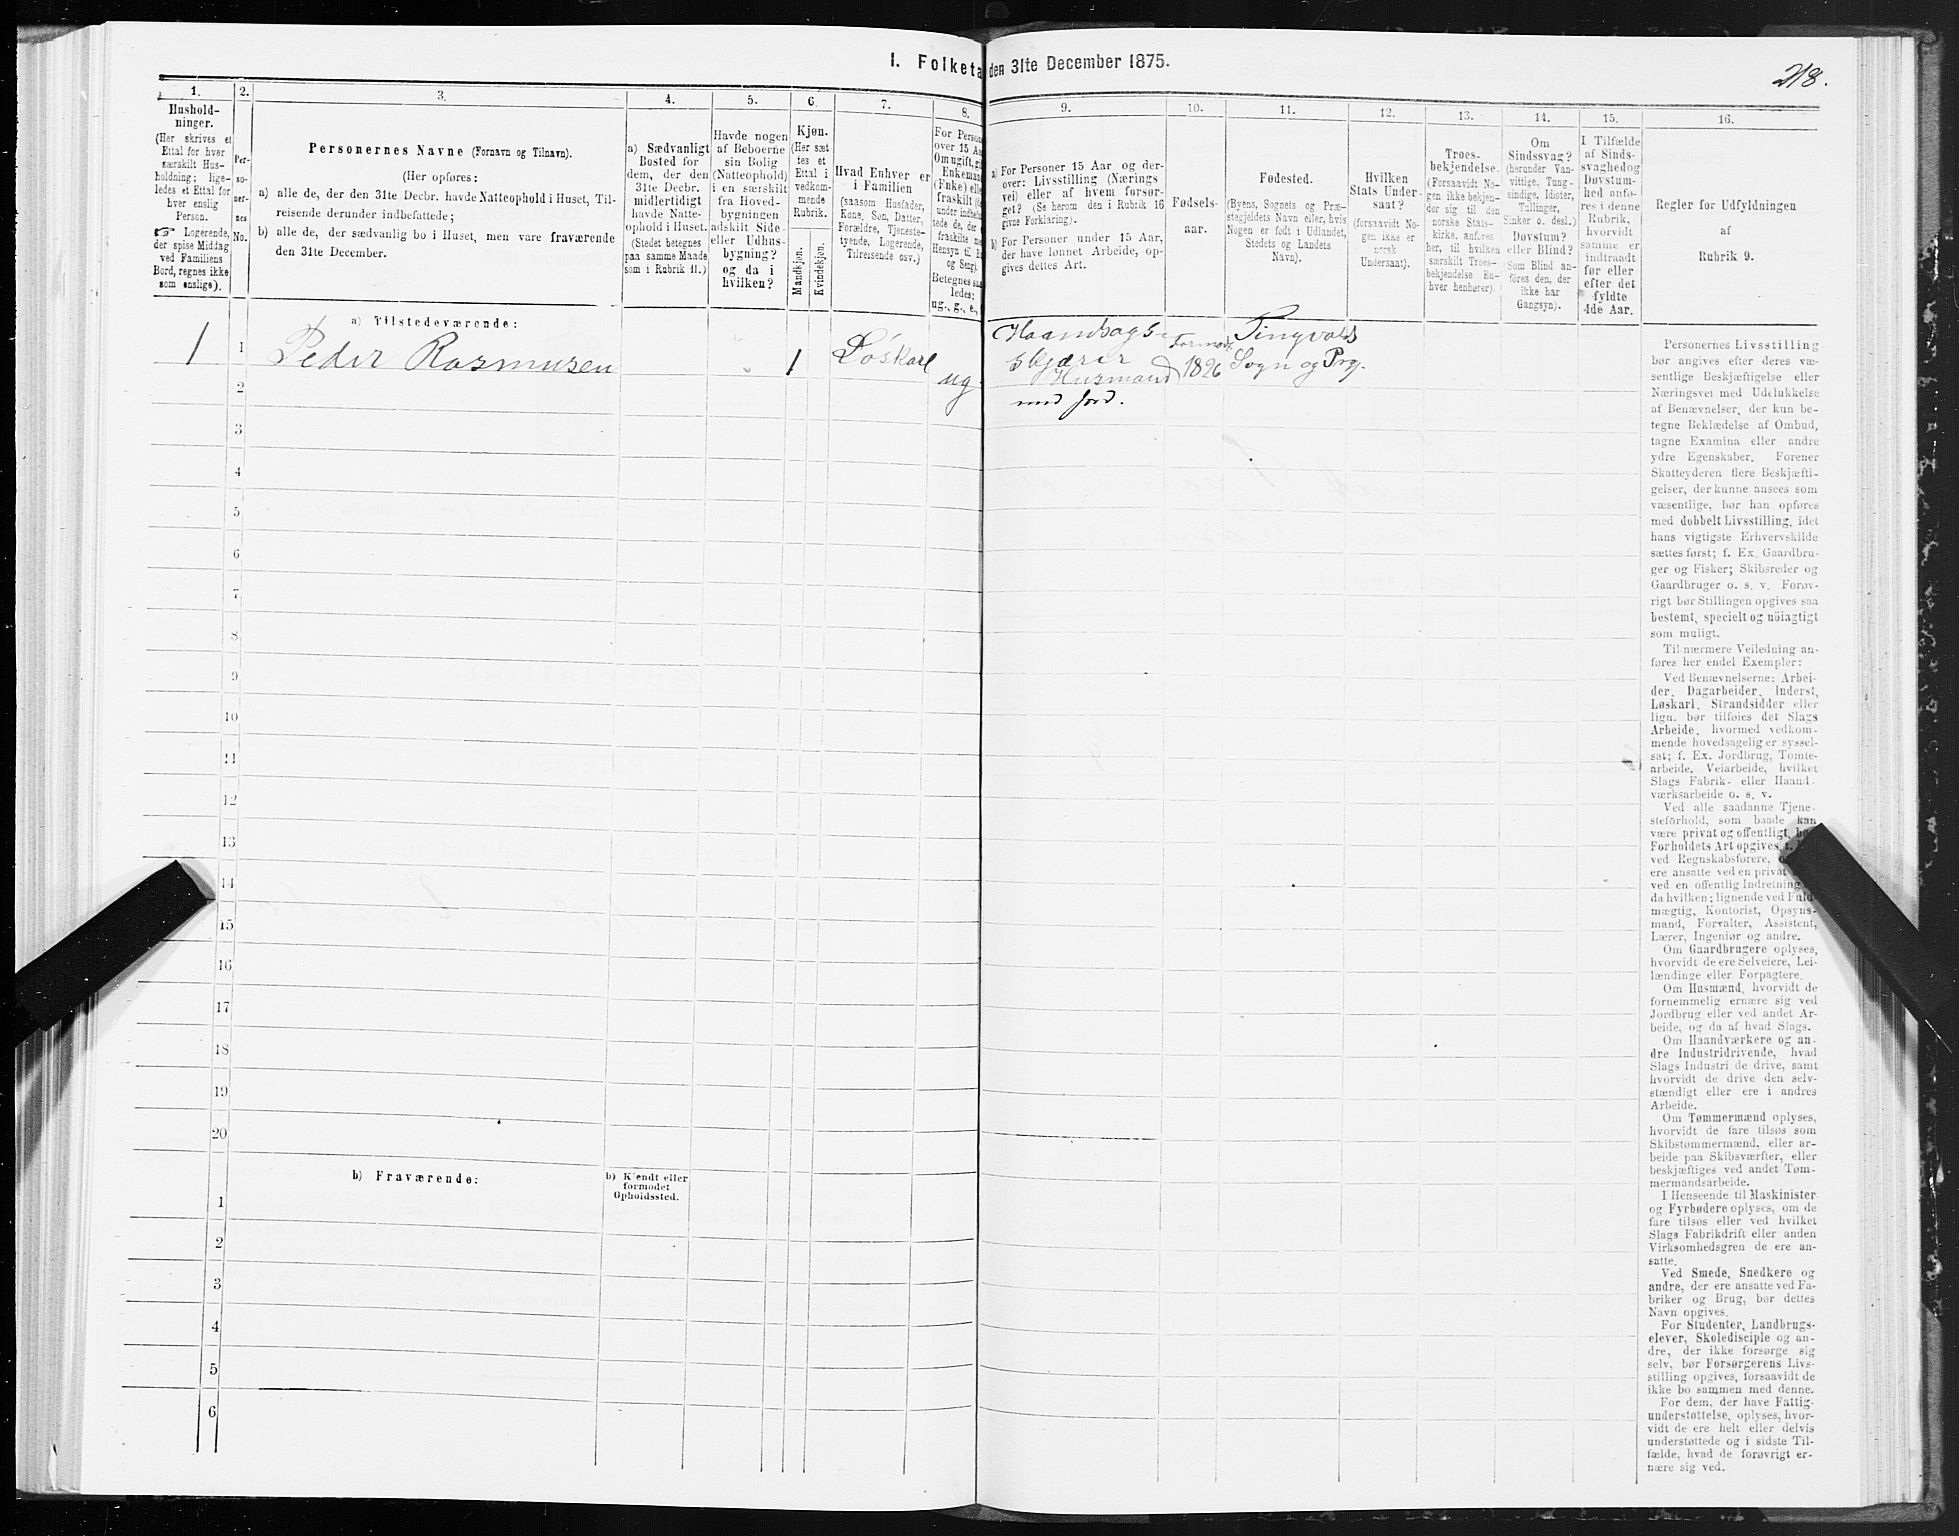 I. Folketa den 31te December 1875.
218.
1.
2.
3.
4.
5.
6.
7.
8.
9.
10.
11.
12.
13.
14.
15.
16.
Hushold-
ninger.
(Her skrives et
Ettal for hver
særskilt Hus-
holdning; lige-
ledes et Ettal for
hver enslig
Person.
☞ Logerende,
der spise Middag
ved Familiens
Bord, regnes ikke
som enslige).
Per-
so-
ner-
nes
No.
Personernes Navne (Fornavn og Tilnavn).
(Her opføres:
a) alle de, der den 31te Decbr. havde Natteophold i Huset, Til-
reisende derunder indbefattede;
b) alle de, der sædvanlig bo i Huset, men vare fraværende
den 31te December.
a) Sædvanligt
Bosted for
dem, der den
31te Decbr.
midlertidigt
havde Natte-
ophold i Huset.
(Stedet betegnes
paa samme Maade
som i Rubrik 11.)
Havde nogen
af Beboerne
sin Bolig
(Natteophold)
i en særskilt
fra Hoved-
bygningen
adskilt Side-
eller Udhus-
bygning?
og da i
hvilken?
Kjøn.
(Her sæt
tes et
Ettal i
vedkom-
mende
Rubrik.
Mandkjøn.
Kvindekjøn.
Hvad Enhver er
i Familien
(saasom Husfader,
Kone, Søn, Datter,
Forældre, Tjeneste-
tyende, Logerende,
Tilreisende osv.)
For Person
over 15 Aa
Om ugift, gi
Enkeman
(Enke) elle
fraskilt (g
under indbefa
tede de, der e
fraskilte me
Hensyn til B
og Seng).
Betegnes saa
ledes:
ug., g., e.,
a) For Personer 15 Aar og der-
over: Livsstilling (Nærings
vei) eller af hvem forsør-
get? (Se herom den i Rubrik 16
givne Forklaring).
b) For Personer under 15 Aar,
der have lønnet Arbeide, op-
gives dettes Art.
Fødsels-
aar.
Fødested.
(Byens, Sognets og Præ-
stegjeldets Navn eller, hvis
Nogen er født i Udlandet,
Stedets og Landets
Navn).
Hvilken
Stats Under-
saat?
(forsaavidt No-
gen ikke er
norsk
Undersaat).
Troes-
bekjendelse.
(Forsaavidt No-
gen ikke bekjen-
der sig til den
norske Stats-
kirke, anføres
her, til hvilken
særskilt Troes-
bekjendelse En-
hver henhører).
Om
Sindssvag?
(herunder Van-
vittige, Tung-
sindige, Idioter,
Tullinger,
Sinker o. desl.)
Døvstum?
eller Blind?
(Som Blind an-
føres den, der
ikke har
Gangsyn).
I Tilfælde
af Sinds-
svaghed og
Døvstum-
hed anfø-
res i denne
Rubrik,
hvorvidt
samme er
indtraadt
før eller
efter det
fyldte
4de Aar.
Regler for Udfyldningen
af
Rubrik 9.
a) Tilstedeværende:
1 1 Peder Rasmusen 1 Løskarl ug
Haandsags-
skjærer
Husmand
med Jord.
Formodt.
1826
Tingvolds
Sogn og Prg.
2
3
4
5
6
7
8
9
10
11
12
13
14
15
16
17
18
19
20
b) Fraværende:
b) Kjendt eller
formodet
Opholdssted.
1
2
3
4
5
6
Personernes Livsstilling
bør angives efter deres væ-
sentlige Beskjæftigelse eller
Næringsvei med Udelukkelse
af Benævnelser, der kun be-
tegne Beklædelse af Ombud,
tagne Examina eller andre
ydre Egenskaber. Forener
Skatteyderen flere Beskjæfti-
gelser, der kunne ansees som
væsentlige, bør han opføres
med dobbelt Livsstilling, idet
hans vigtigste Erhvervskilde
sættes først; f. Ex. Gaardbru-
ger og Fisker; Skibsreder og
Gaardbruger o. s. v. Forøv-
rigt bør Stillingen opgives saa
bestemt, specielt og nøiagtigt
som muligt.
Til nærmere Veiledning an-
føres her endel Exempler:
Ved Benævnelserne: Arbei-
der, Dagarbeider, Inderst,
Løskarl, Strandsidder eller
lign. bør tilføies det Slags
Arbeide, hvormed vedkom-
mende hovedsagelig er syssel-
sat; f. Ex. Jordbrug, Tomte-
arbeide, Veiarbeide, hvilket
Slags Fabrik- eller Haand-
værksarbeide o. s. v.
Ved alle saadanne Tjene-
steforhold, som baade kan
være privat og offentligt,
Forholdets Art opgives,
ved Regnskabsførere,
ere ansatte ved en privat
ved en offentlig Indretning
da hvilken; lignende ved Fuld-
mægtig, Kontorist, Opsyns-
mand, Forvalter, Assistent,
Lærer, Ingeniør og andre.
Om Gaardbrugere oplyses,
hvorvidt de ere Selveiere, Lei-
lændinge eller Forpagtere.
Om Husmænd, hvorvidt de
fornemmelig ernære sig ved
Jordbrug eller ved andet Ar-
beide, og da af hvad Slags.
Om Haandværkere og an-
dre Industridrivende, hvad
Slags Industri de drive, samt
hvorvidt de drive den selv-
stændigt eller ere i andres
Arbeide.
Om Tømmermænd oplyses,
hvorvidt de fare tilsøs som
Skibstømmermænd, eller ar-
beide paa Skibsværfter, eller
beskjæftiges ved andet Tøm-
mermandsarbeide.
I Henseende til Maskinister
og Fyrbødere oplyses, om de
fare tilsøs eller ved hvilket
Slags Fabrikdrift eller anden
Virksomhedsgren de ere an-
satte.
Ved Smede, Snedkere og
andre, der ere ansatte ved Fa-
briker og Brug, bør dettes
Navn opgives.
For Studenter, Landbrugs-
elever, Skoledisciple og an-
dre, der ikke forsørge sig
selv, bør Forsørgerens Livs-
stilling opgives, forsaavidt de
ikke bo sammen med denne.
For dem, der have Fattig-
understøttelse, oplyses, hvor-
vidt de ere helt eller delvis
understøttede og i sidste Til-
fælde, hvad de forøvrigt er-
nære sig ved.